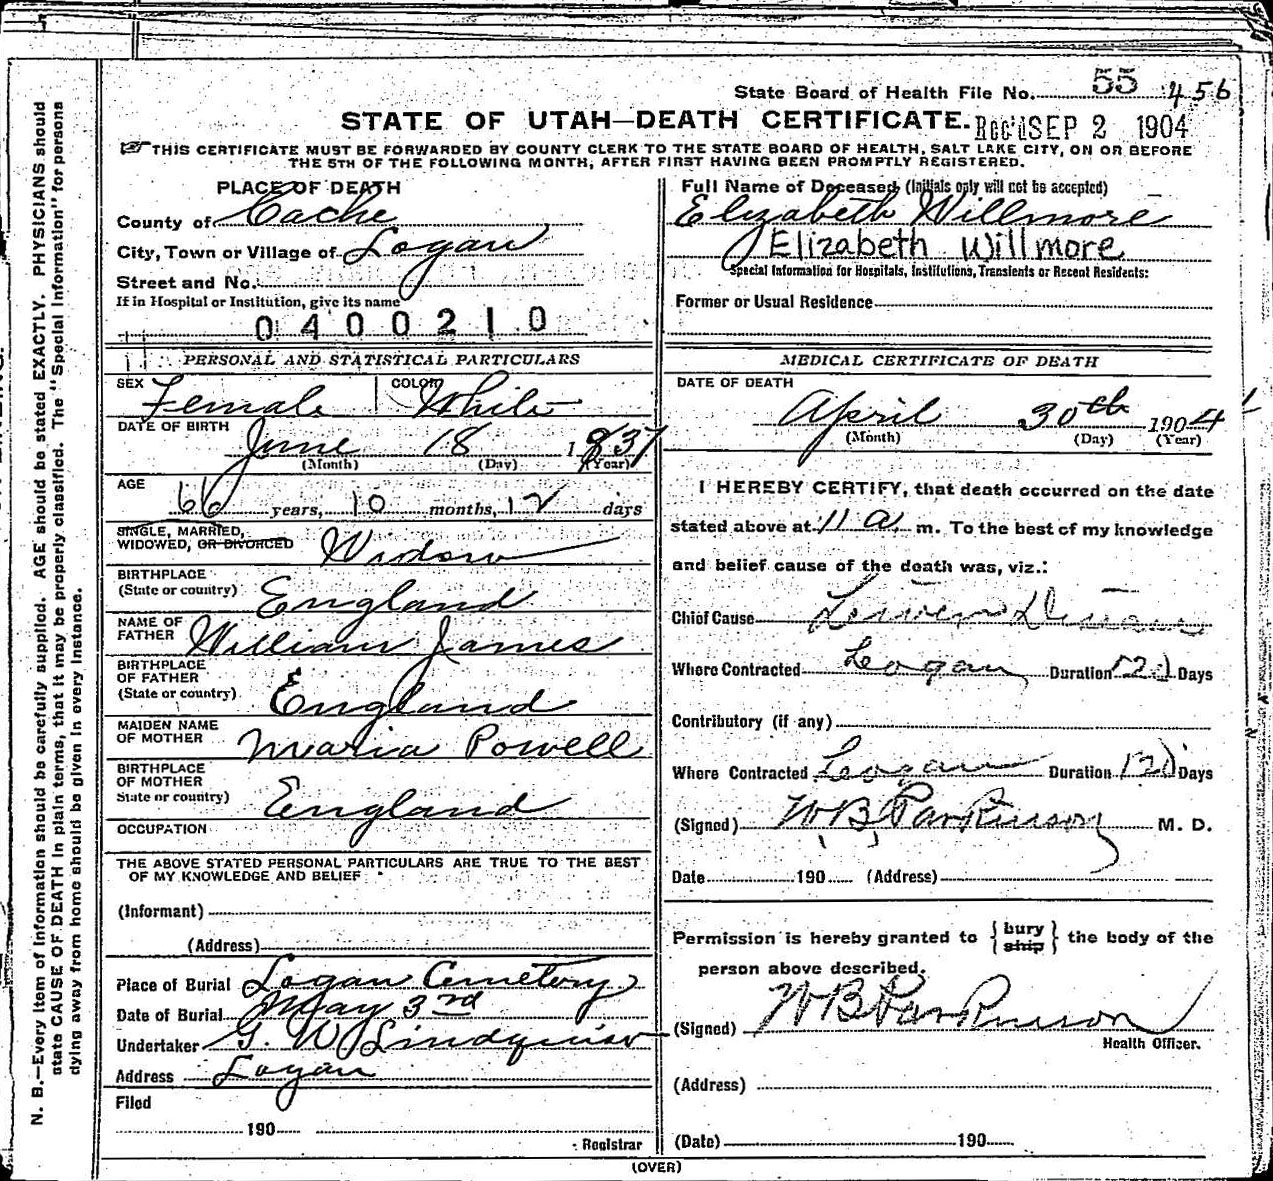 State Board of Health File No. 55 456
STATE OF UTAH—DEATH CERTIFICATE. Rec'd SEP 2 1904
THIS CERTIFICATE MUST BE FORWARDED BY COUNTY CLERK TO THE STATE BOARD OF HEALTH, SALT LAKE CITY, ON OR BEFORE
THE 5TH OF THE FOLLOWING MONTH, AFTER FIRST HAVING BEEN PROMPTLY REGISTERED.
PLACE OF DEATH
County of Cache
City, Town or Village of Logan
Street and No.
If in Hospital or Institution, give its name
0400210
PERSONAL AND STATISTICAL PARTICULARS
SEX Female COLOR White
DATE OF BIRTH June 18 1837
(Month) (Day) (Year)
AGE 66 years, 10 months, 12 days
SINGLE, MARRIED,
WIDOWED, OR DIVORCED Widow
BIRTHPLACE
(State or country) England
NAME OF
FATHER William James
BIRTHPLACE
OF FATHER
(State or country) England
MAIDEN NAME
OF MOTHER Maria Powell
BIRTHPLACE
OF MOTHER
State or country) England
OCCUPATION
THE ABOVE STATED PERSONAL PARTICULARS ARE TRUE TO THE BEST
OF MY KNOWLEDGE AND BELIEF
(Informant)
(Address)
Place of Burial Logan Cemetery
Date of Burial May 3rd
Undertaker G. W. Lindquist
Address Logan
Filed
190
Registrar
Full Name of Deceased (Initials only will not be accepted)
Elizabeth Willmore
Elizabeth Willmore
Special Information for Hospitals, Institutions, Transients or Recent Residents:
Former or Usual Residence
MEDICAL CERTIFICATE OF DEATH
DATE OF DEATH
April 30th 1904
(Month) (Day) (Year)
I HEREBY CERTIFY, that death occurred on the date
stated above at 11 a m. To the best of my knowledge
and belief cause of the death was, viz.:
Chief Cause
Where Contracted Logan Duration Days
Contributory (if any)
Where Contracted Logan Duration Days
(Signed) W B Parkinson M. D.
Date 190 (Address)
Permission is hereby granted to {bury ship} the body of the
person above described.
(Signed) W B Parkinson
Health Officer.
(Address)
(Date) 190
(OVER)
N. B.—Every item of information should be carefully supplied. AGE should be stated EXACTLY. PHYSICIANS should
state CAUSE OF DEATH in plain terms, that it may be properly classified. The "Special Information" for persons
dying away from home should be given in every instance.